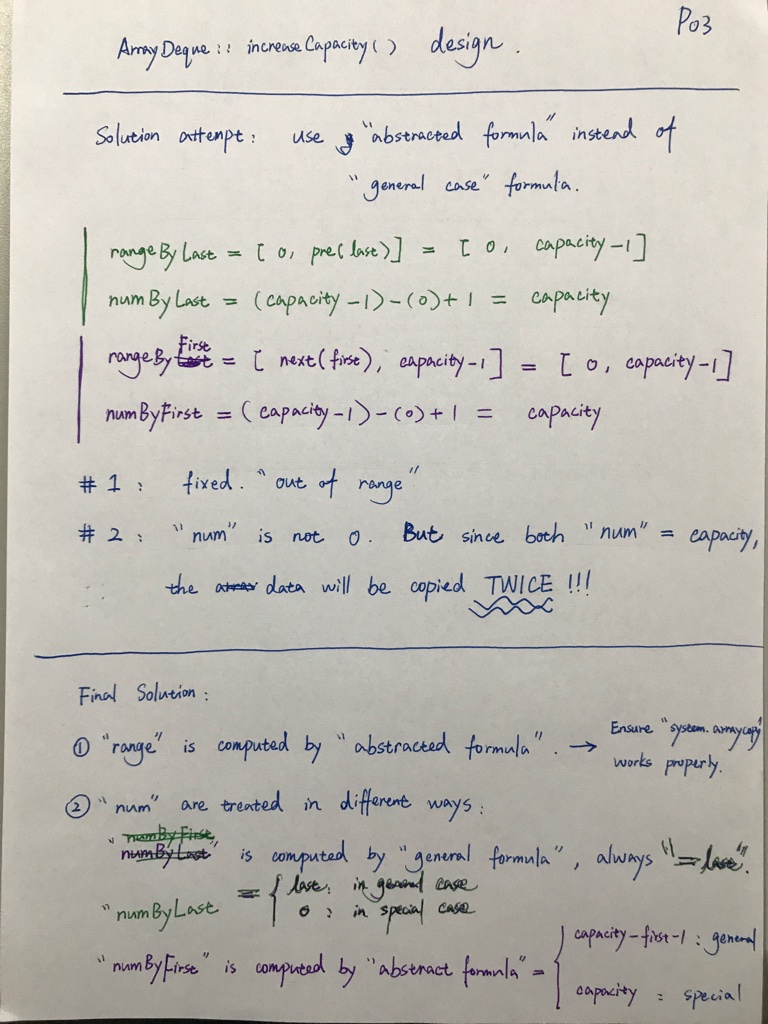 P03
ArrayDeque :: increaseCapacity() design.
Solution attempt: use "abstracted formula" instead of
"general case" formula.
rangeByLast = [ 0, pre(last)] = [ 0, capacity-1]
numByLast = (capacity-1)-(0)+1 = capacity
rangeByFirst = [ next(first), capacity-1] = [ 0, capacity-1]
numByFirst = (capacity-1)-(0)+1 = capacity
#1: fixed. "out of range"
#2: "num" is not 0. But since both "num" = capacity,
the data will be copied TWICE !!!
Final Solution:
① "range" is computed by "abstracted formula". → Ensure "system.arraycopy"
works properly.
② "num" are treated in different ways:
"numByFirst
numByLast" is computed by "general formula", always "= last".
"numByLast = { last: in general case
0: in special case
"numByFirst" is computed by "abstract formula" = { capacity-first-1: general
capacity: special